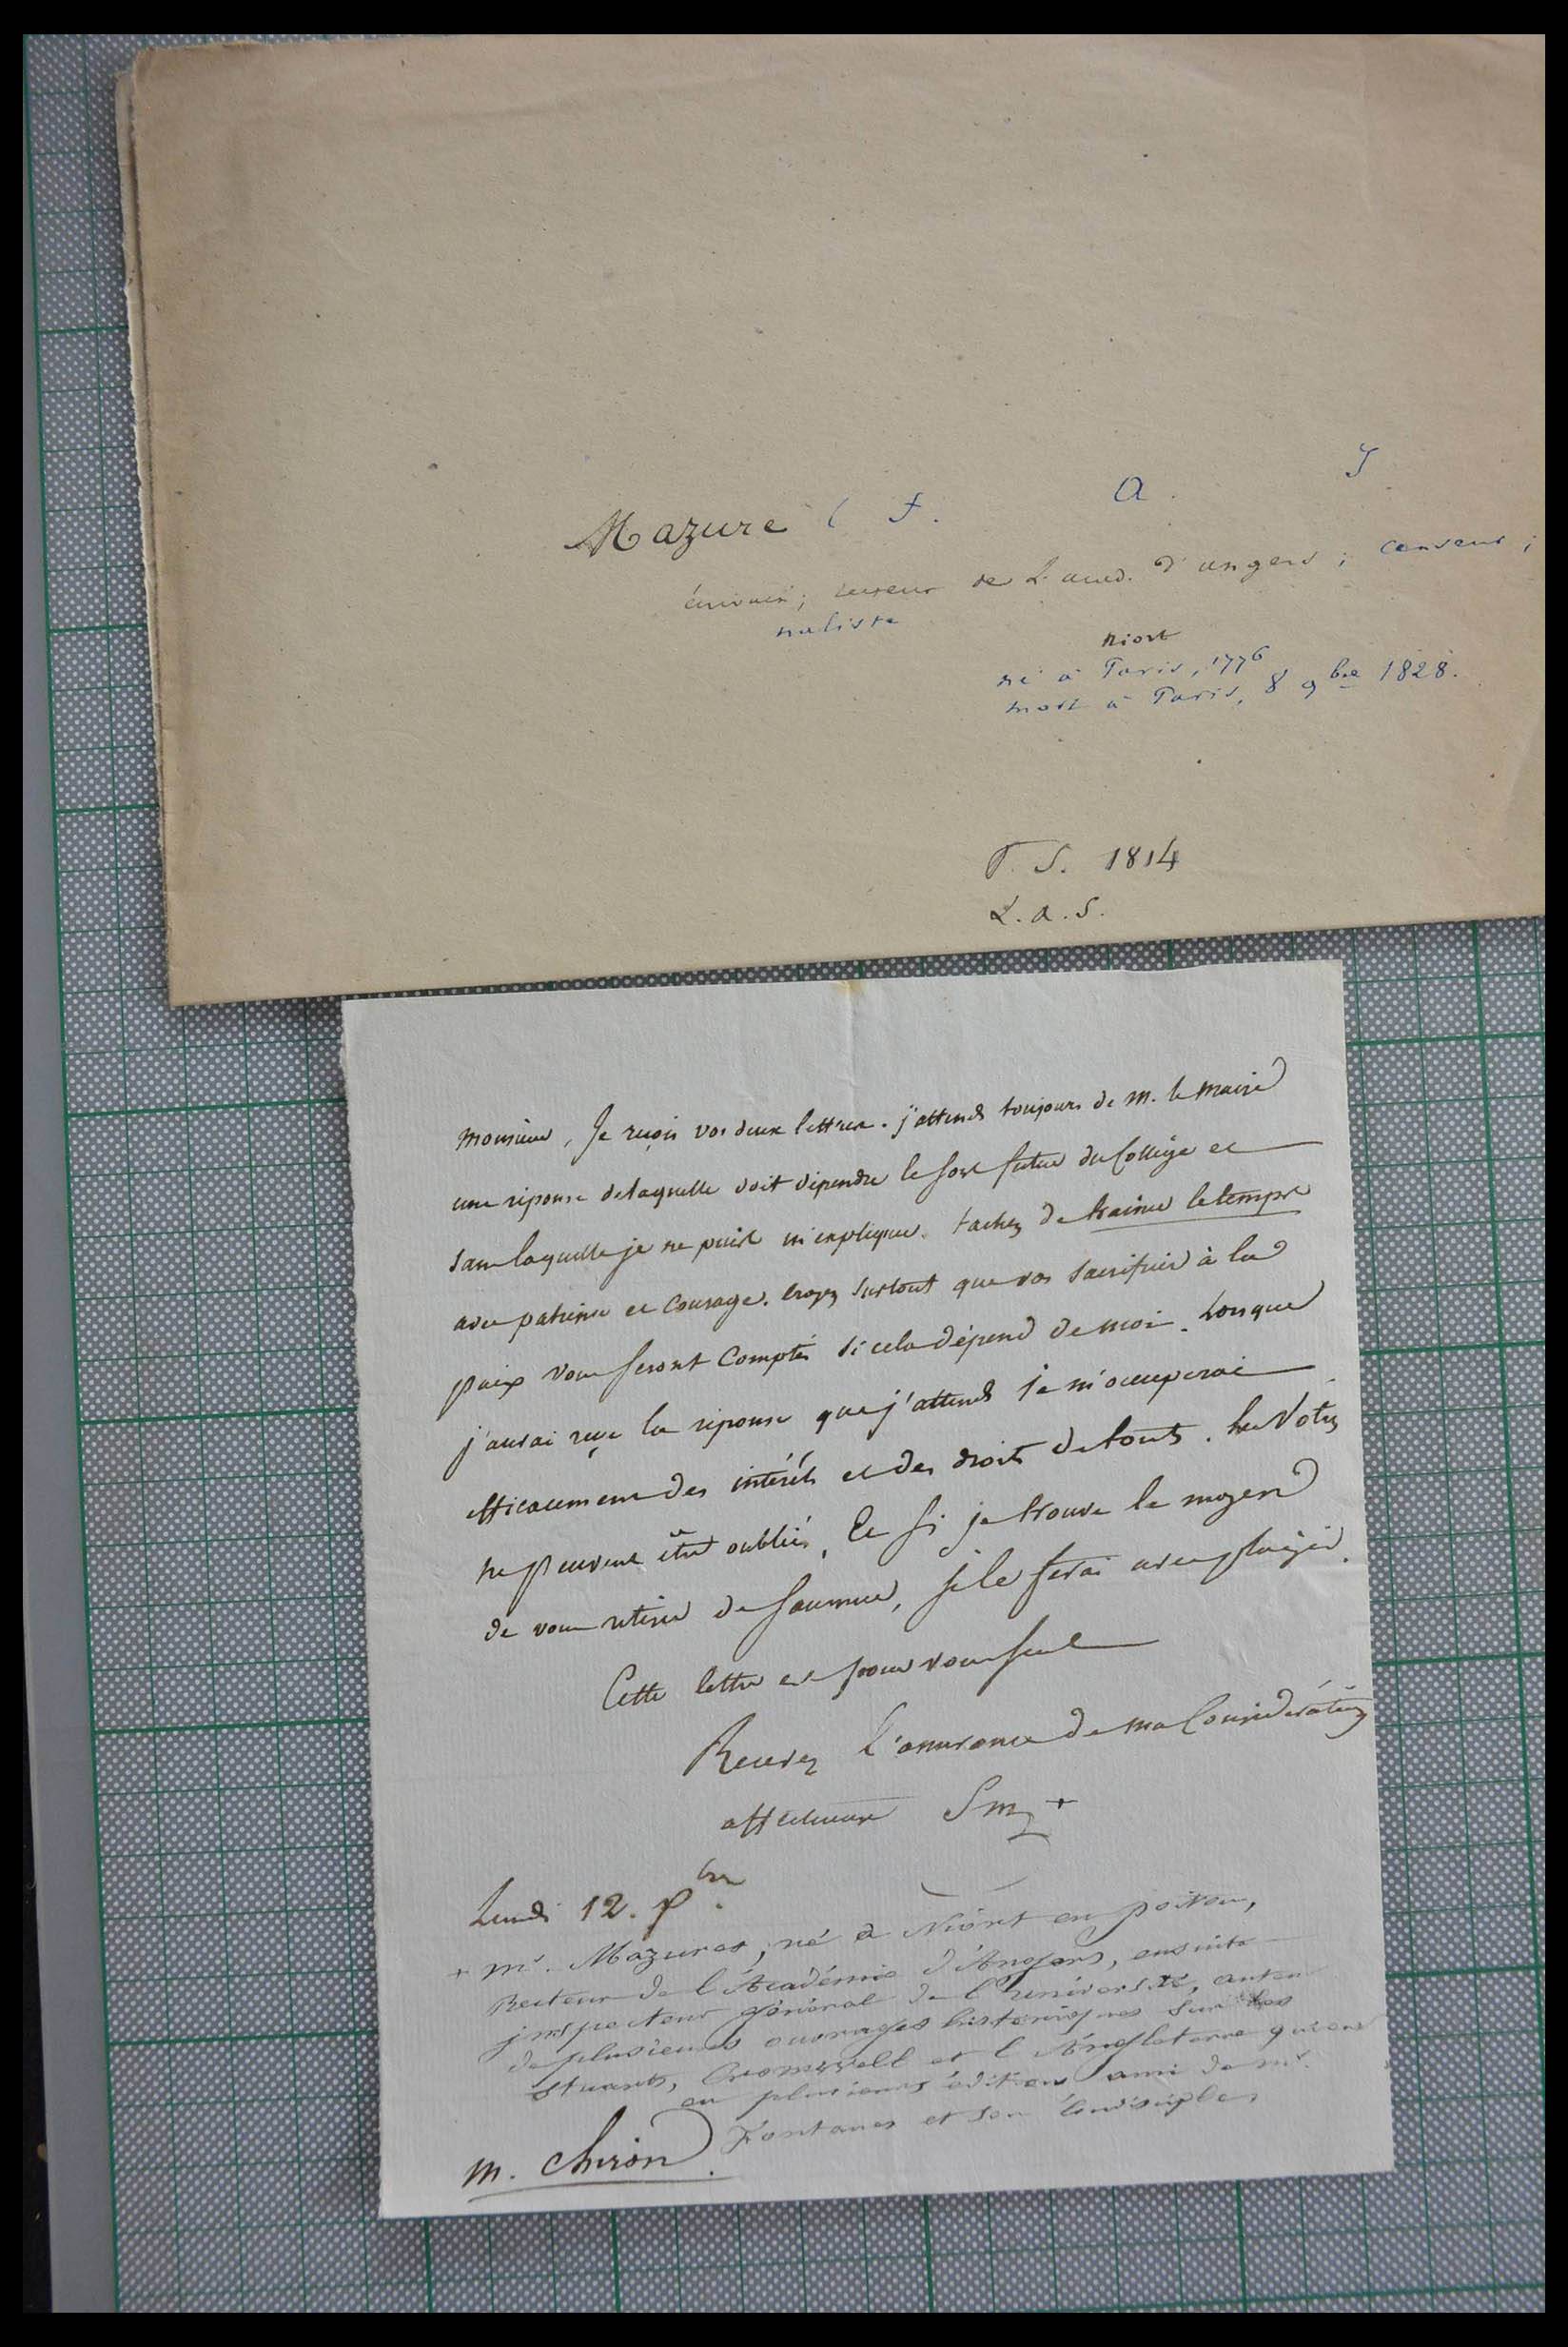 Mazure ( F. A. J
écrivain; recteur de l'acad. d'angers; censeur;
naliste
niort
né à Paris, 1776
mort à Paris, 8 9bre 1828.
P. S. 1814
L. a. S.
monsieur, Je reçois vos deux lettres. j'attends toujours de m. le maire
une réponse delaquelle doit dépendre le sort futur du Collège et
sans laquelle je ne puis m'expliquer. tachez de trainer le temps
avec patience et courage. croyez surtout que vos sacrifices à la
paix vous seront comptés si cela dépend de moi. Lorsque
j'aurai reçu la réponse que j'attends je m'occuperai
efficacement des intérêts et des droits de tous. les Votres
ne peuvent être oubliés, Et si je trouve le moyen
de vous retirer de Saumur, je le ferai avec plaisir.
Cette lettre est pour vous seul
Recevez l'assurance de ma Considération
affectueuse +
Lundi 12. bre
+ mr. Mazures, né à Niort en poitou,
Recteur de l'Académie d'Angers, ensuite
inspecteur général de l'université, auteur
de plusieurs ouvrages historiques sur les
Stuarts, Cromwell et l'Angleterre qui ont
eu plusieurs édition ami de mr.
Fontanes et son
m. Chiron